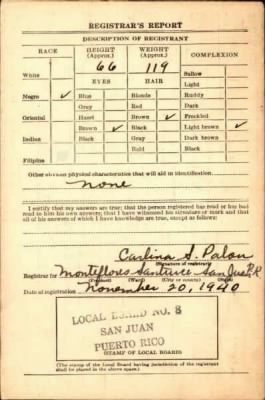 REGISTRAR'S REPORT
DESCRIPTION OF REGISTRANT
RACE HEIGHT (Approx.) WEIGHT (Approx.) COMPLEXION
66 119
White Sallow
EYES HAIR Light
Negro ✓ Blue Blonde Ruddy
Gray Red Dark
Oriental Hazel Brown ✓ Freckled
Brown ✓ Black Light brown ✓
Indian Black Gray Dark brown
Bald Black
Filipino
Other obvious physical characteristics that will aid in identification
None
I certify that my answers are true; that the person registered has read or has had
read to him his own answers; that I have witnessed his signature or mark and that
all of his answers of which I have knowledge are true, except as follows:
Carlina S. Palou
(Signature of registrar)
Registrar for Monteflores Santurce San Juan P.R.
(Precinct) (Ward) (City or county) (State)
Date of registration November 20, 1940
LOCAL BOARD NO. 8
SAN JUAN
PUERTO RICO
(STAMP OF LOCAL BOARD)
(The stamp of the Local Board having jurisdiction of the registrant
shall be placed in the above space.)